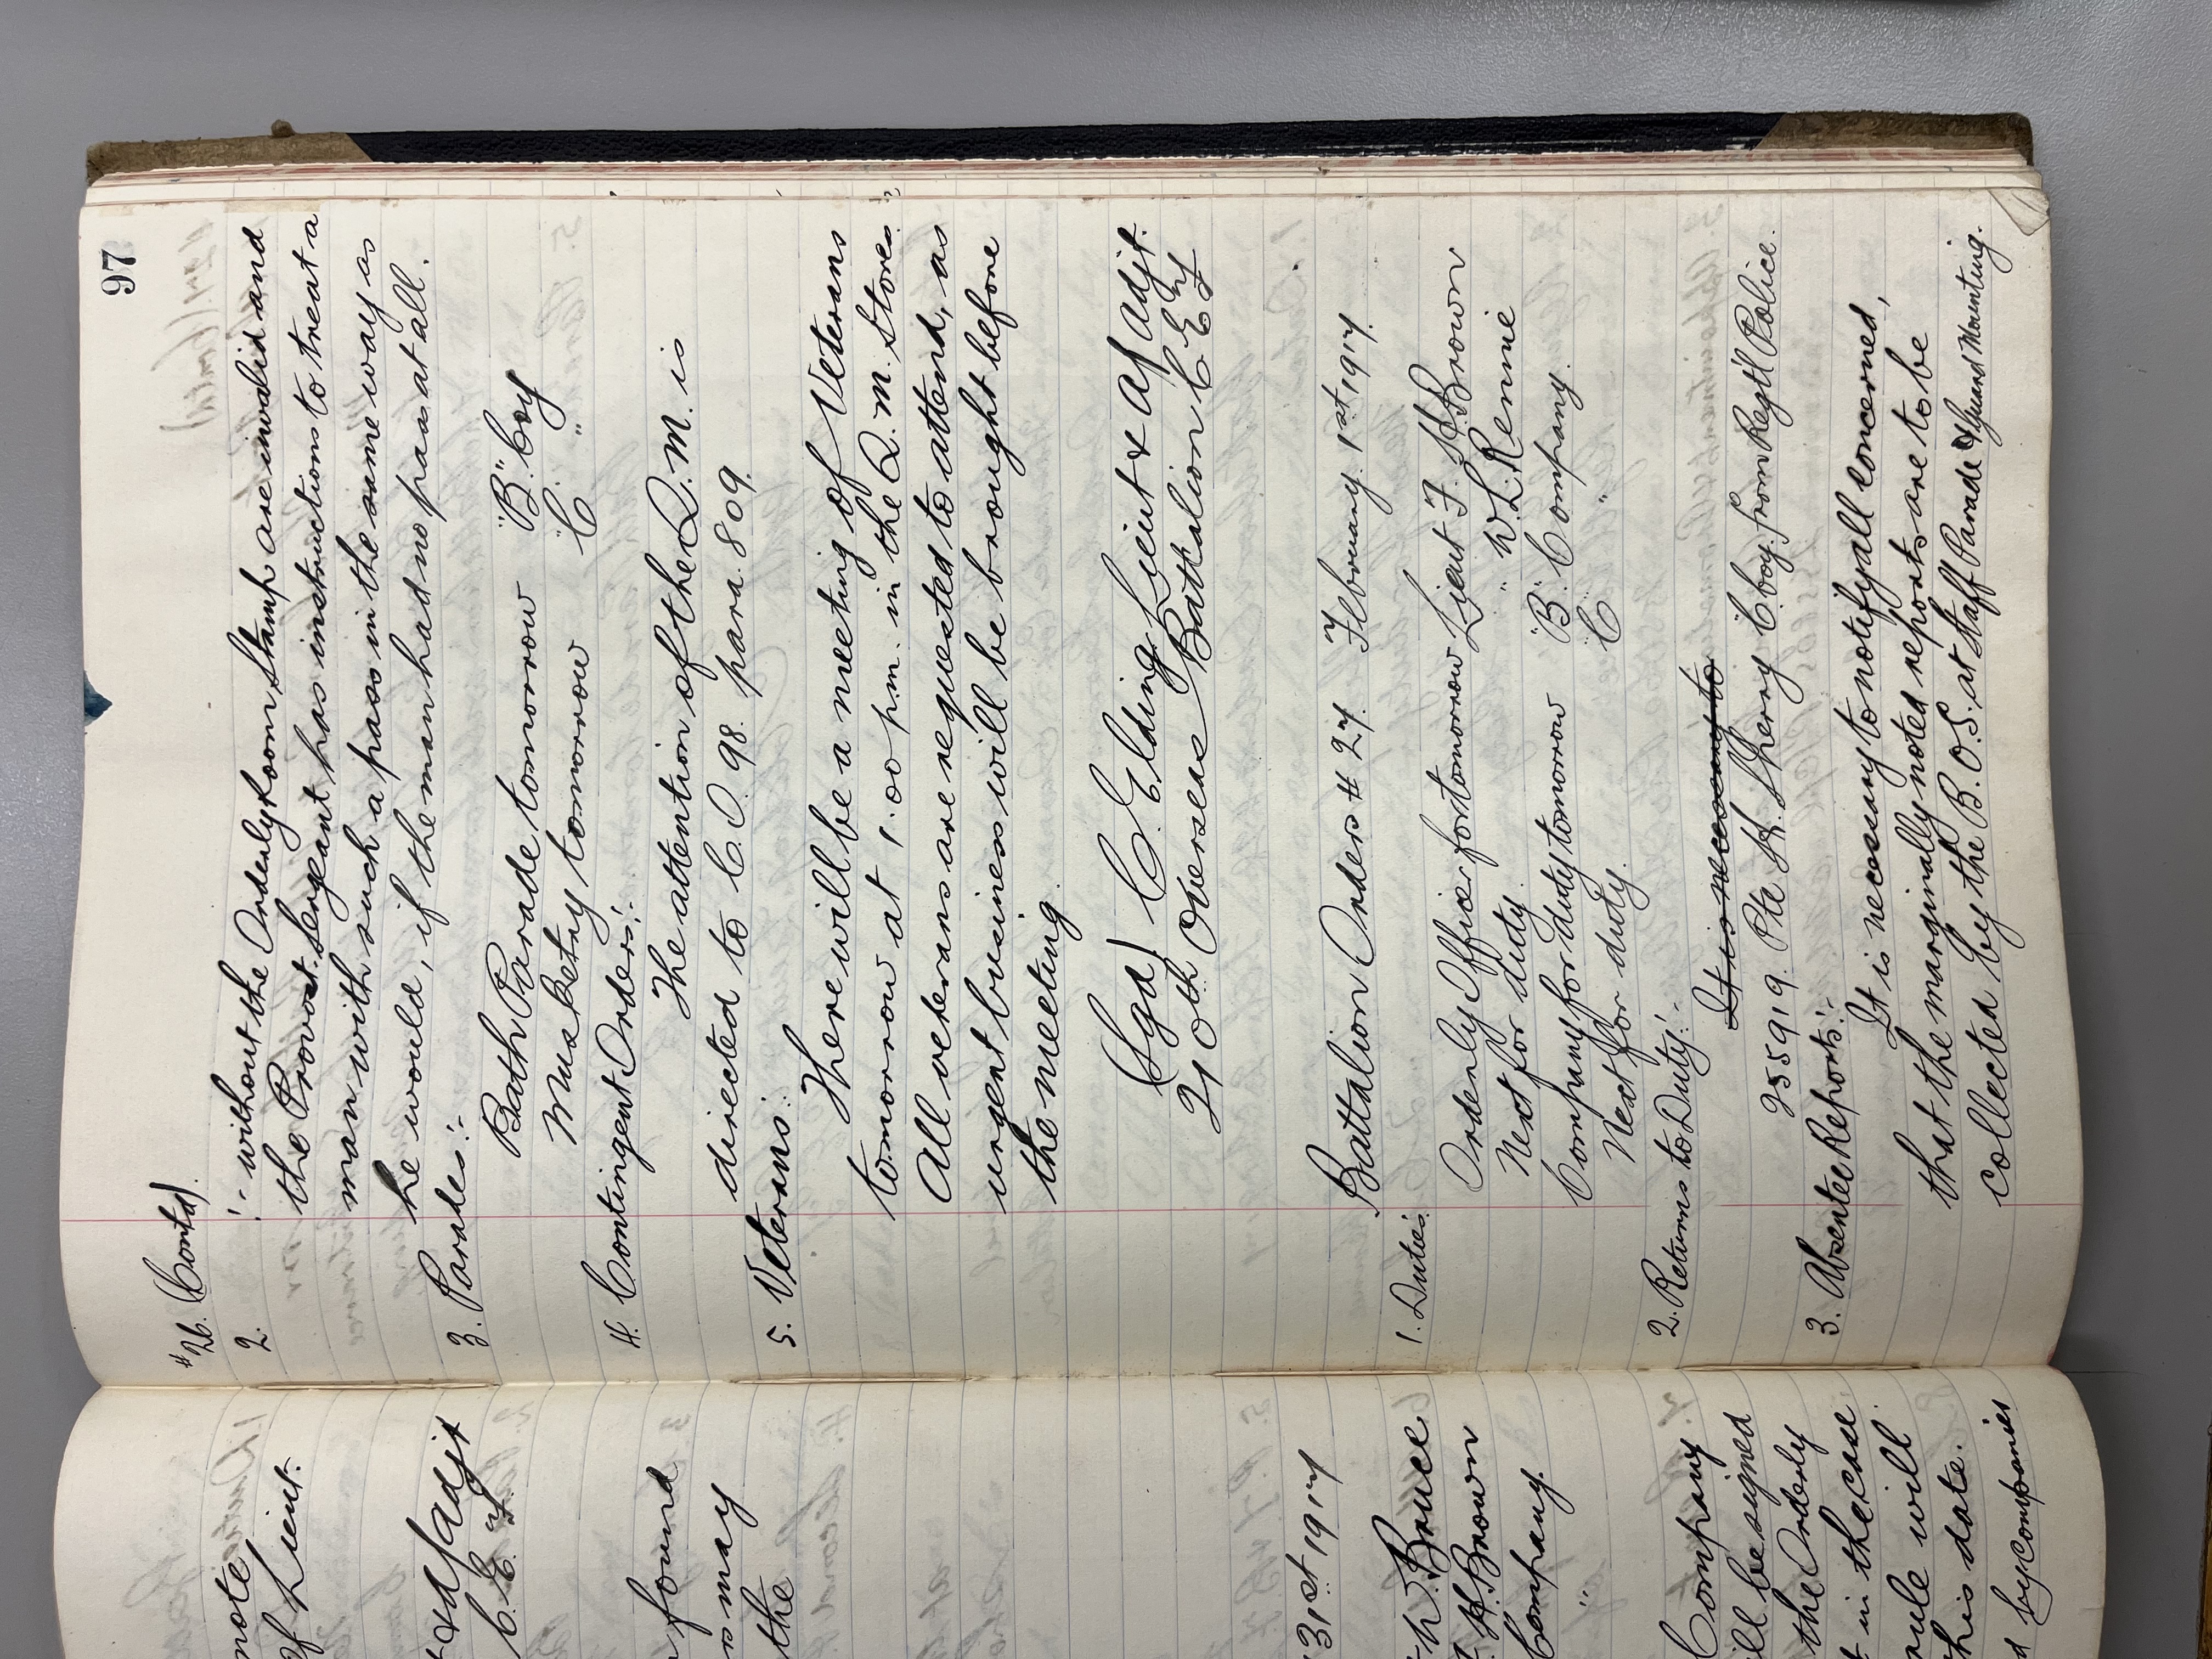 97
#26. (Contd).
2. :- without the Orderly Room Stamp are invalid and
the Provost Sergeant has instructions to treat a
man with such a pass in the same way as
he would, if the man had no pass at all.
3. Parades:-
Bath Parade tomorrow "B" Coy
Musketry tomorrow "C" "
4. Contingent Orders:-
The attention of the Q.M. is
directed to C.O. 98. para. 809.
5. Veterans:
There will be a meeting of Veterans
tomorrow at 1.00 p.m. in the Q.M. Stores.
All veterans are requested to attend, as
urgent business will be brought before
the meeting.
(Sgd) C. Elding Lieut & a/adjt.
210th Overseas Battalion C.E.F.
Battalion Orders # 27. February 1st 1917.
1. Duties:
Orderly Officer for tomorrow Lieut F. H. Brown
Next for duty. " W. L. Rennie
Company for Duty tomorrow "B" Company.
Next for duty. "C" "
2. Returns to Duty:-
It is necessary to
255919. Pte H. Sherry C. Coy. from Regt'l Police.
3. Absentee Reports:-
It is necessary to notify all concerned,
that the marginally noted reports are to be
collected by the B.O.S. at Staff Parade & Guard Mounting.
note
of Lieut.
& a/adjt
C.E.F.
found
may
the
31st 1917
h. Bruce
H. Brown
Company.
"
Company
ill be signed
the Orderly
t in the case
rule will
his date.
d by companies